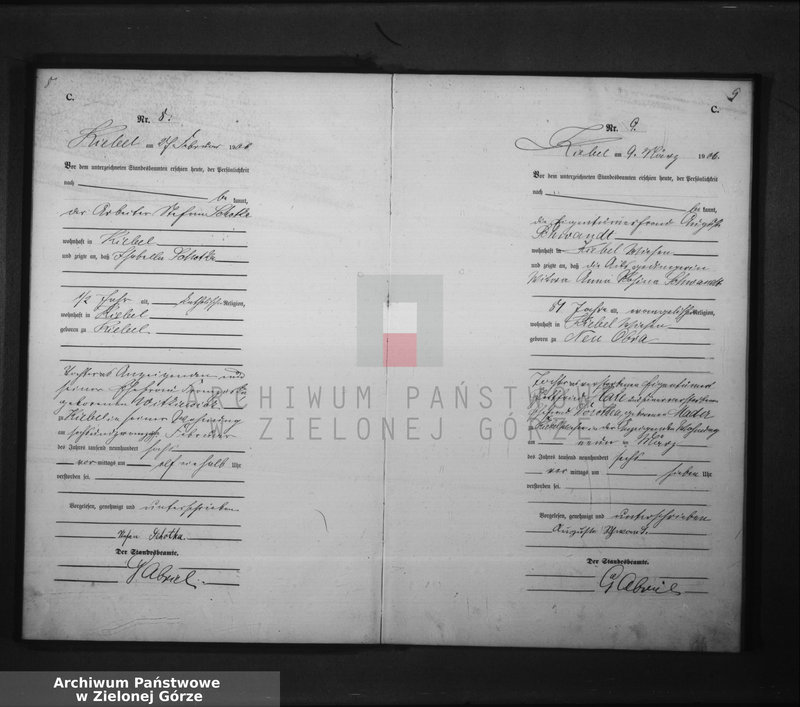 8
C.
Nr. 8.
Kiebel am 27 Februar 1906
Vor dem unterzeichneten Standesbeamten erschien heute, der Persönlichkeit
nach be kannt,
der Arbeiter Stefan Schotka
wohnhaft in Kiebel
und zeigte an, daß Isabella Schotka
1/2 Jahr alt, katholischer Religion,
wohnhaft in Kiebel
geboren zu Kiebel
Tochter des Anzeigenden und
seiner Ehefrau
geborenen
zu Kiebel in seiner Wohnung
am sechsundzwanzigsten Februar
des Jahres tausend neunhundert sechs
vor mittags um elf einhalb Uhr
verstorben sei.
Vorgelesen, genehmigt und unterschrieben
Stefan Schotka
Der Standesbeamte.
Gabriel
9
C.
Nr. 9.
Kiebel am 9. März 1906.
Vor dem unterzeichneten Standesbeamten erschien heute, der Persönlichkeit
nach be kannt,
die Eigentümerfrau Auguste
Schwandt
wohnhaft in Kiebel Wiesen
und zeigte an, daß die Altsgedingerin
Witwe Anna Rosina Schwandt
81 Jahre alt, evangelischer Religion,
wohnhaft in Kiebel Wiesen
geboren zu Neu Obra
Tochter
geborenen Mader
Wohnung
am neunten März
des Jahres tausend neunhundert sechs
vor mittags um sieben Uhr
verstorben sei.
Vorgelesen, genehmigt und unterschrieben
Auguste Schwandt.
Der Standesbeamte.
Gabriel
ARCHIWUM PAŃSTWOWE
W ZIELONEJ GÓRZE
Archiwum Państwowe
w Zielonej Górze